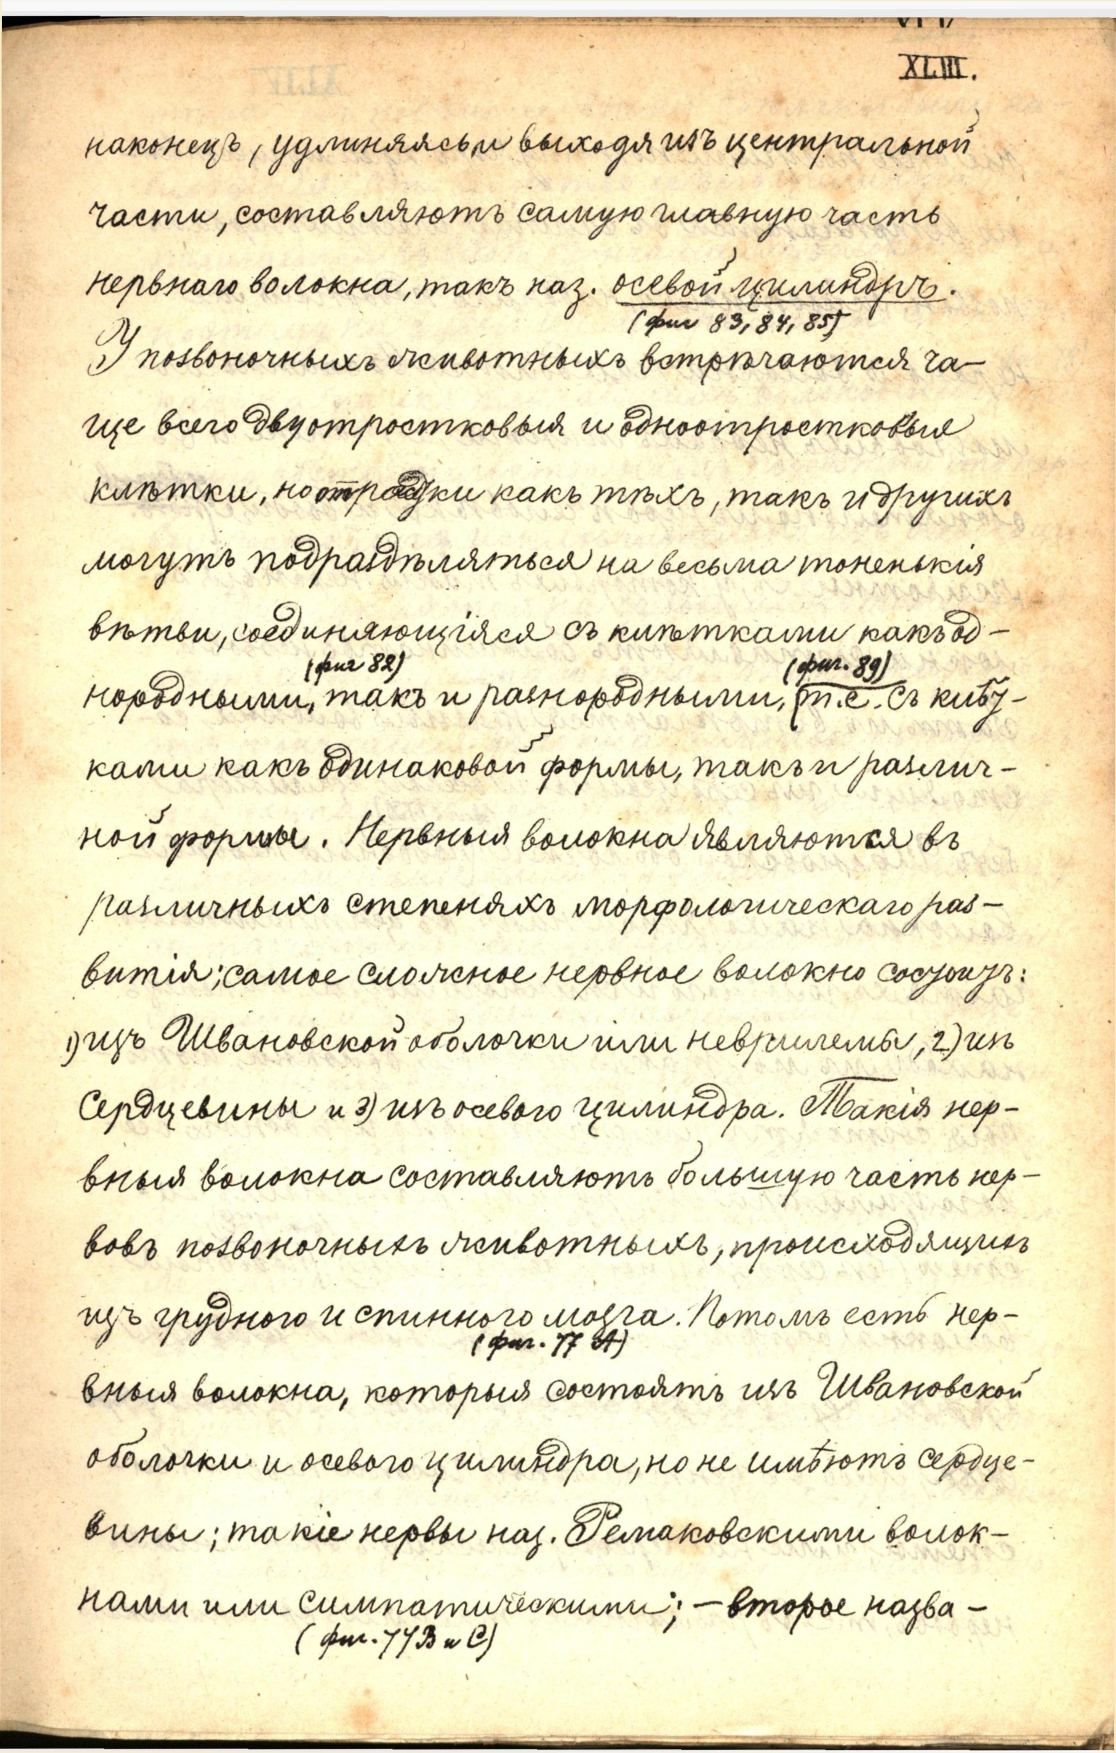 XLIII.
наконецъ, удлиняясь и выходя изъ центральной
части, составляютъ самую главную часть
нервнаго волокна, такъ наз. осевой цилиндръ.
(фиг 83, 84, 85)
У позвоночныхъ животныхъ встрѣчаются ча-
ще всего двуотростковыя и одноотростковыя
клѣтки, но отростки какъ тѣхъ, такъ и другихъ
могутъ подраздѣляться на весьма тоненькія
вѣтви, соединяющіяся съ клѣтками какъ од-
(фиг 82) (фиг. 89)
нородными, такъ и разнородными, т.е. съ клѣт-
ками какъ одинаковой формы, такъ и различ-
ной формы. Нервныя волокна являются въ
различныхъ степеняхъ морфологическаго раз-
витія; самое сложное нервное волокно состоитъ:
1) изъ Швановской оболочки или неврилемы, 2) изъ
Сердцевины и 3) изъ осевого цилиндра. Такія нер-
вныя волокна составляютъ большую часть нер-
вовъ позвоночныхъ животныхъ, происходящихъ
изъ грудного и спинного мозга. Потомъ есть нер-
(фиг. 77 А)
вныя волокна, которыя состоятъ изъ Швановской
оболочки и осевого цилиндра, но не имѣютъ сердце-
вины; такіе нервы наз. Ремаковскими волок-
нами или симпатическими; - второе назва-
(фиг. 77 В и С)